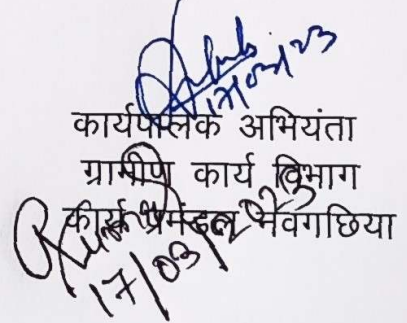 17/03/23
कार्यपालक अभियंता
ग्रामीण कार्य विभाग
कार्य प्रमंडल नवगछिया
17/03/2023